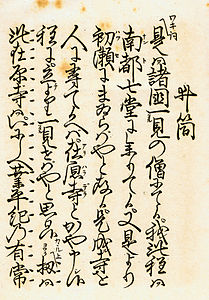 井筒
ワキ詞
是は諸國一見の僧にて候我此程は
南都七堂に参りて候又是より
初瀬にまゐらばやと存候是成寺を
人に尋て候へば在原寺とかや申候
程に立より一見せばやと思ひ候扨は
此在原寺はいにしへ業平紀の有常